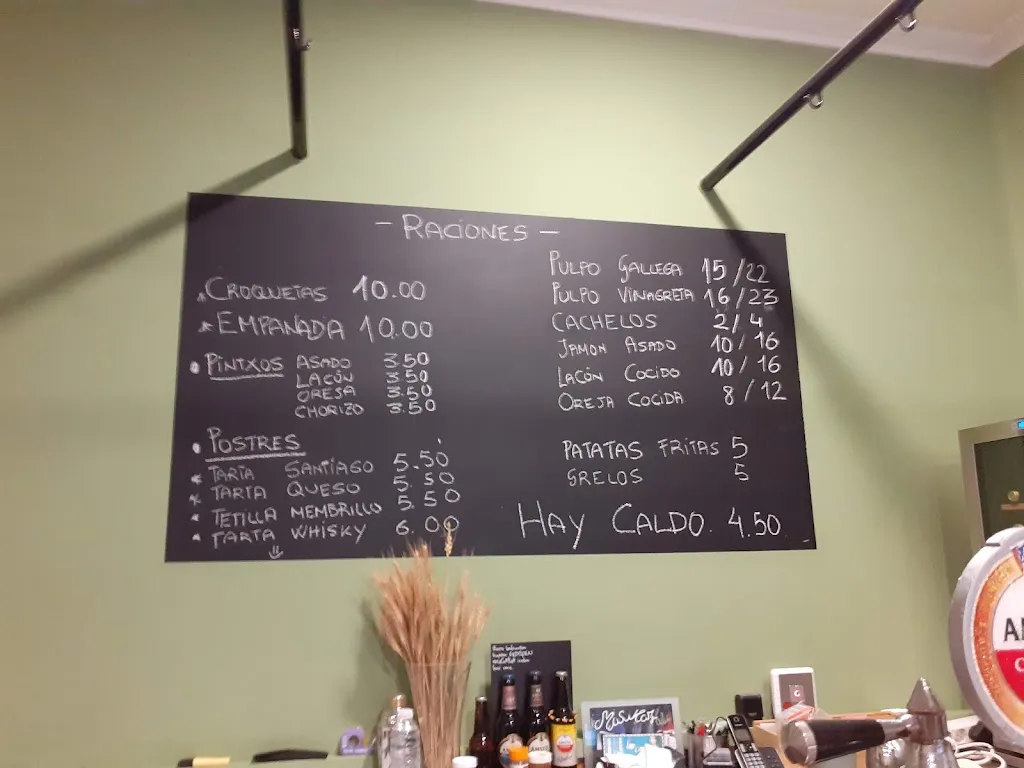 - RACIONES -
CROQUETAS 10.00
EMPANADA 10.00
PINTXOS ASADO 3.50
LACÓN 3.50
OREJA 3.50
CHORIZO 3.50
POSTRES
TARTA SANTIAGO 5.50
TARTA QUESO 5.50
TETILLA MEMBRILLO 5.50
TARTA WHISKY 6.00
PULPO GALLEGA 15/22
PULPO VINAGRETA 16/23
CACHELOS 2/4
JAMON ASADO 10/16
LACÓN COCIDO 10/16
OREJA COCIDA 8/12
PATATAS FRITAS 5
GRELOS 5
HAY CALDO. 4.50